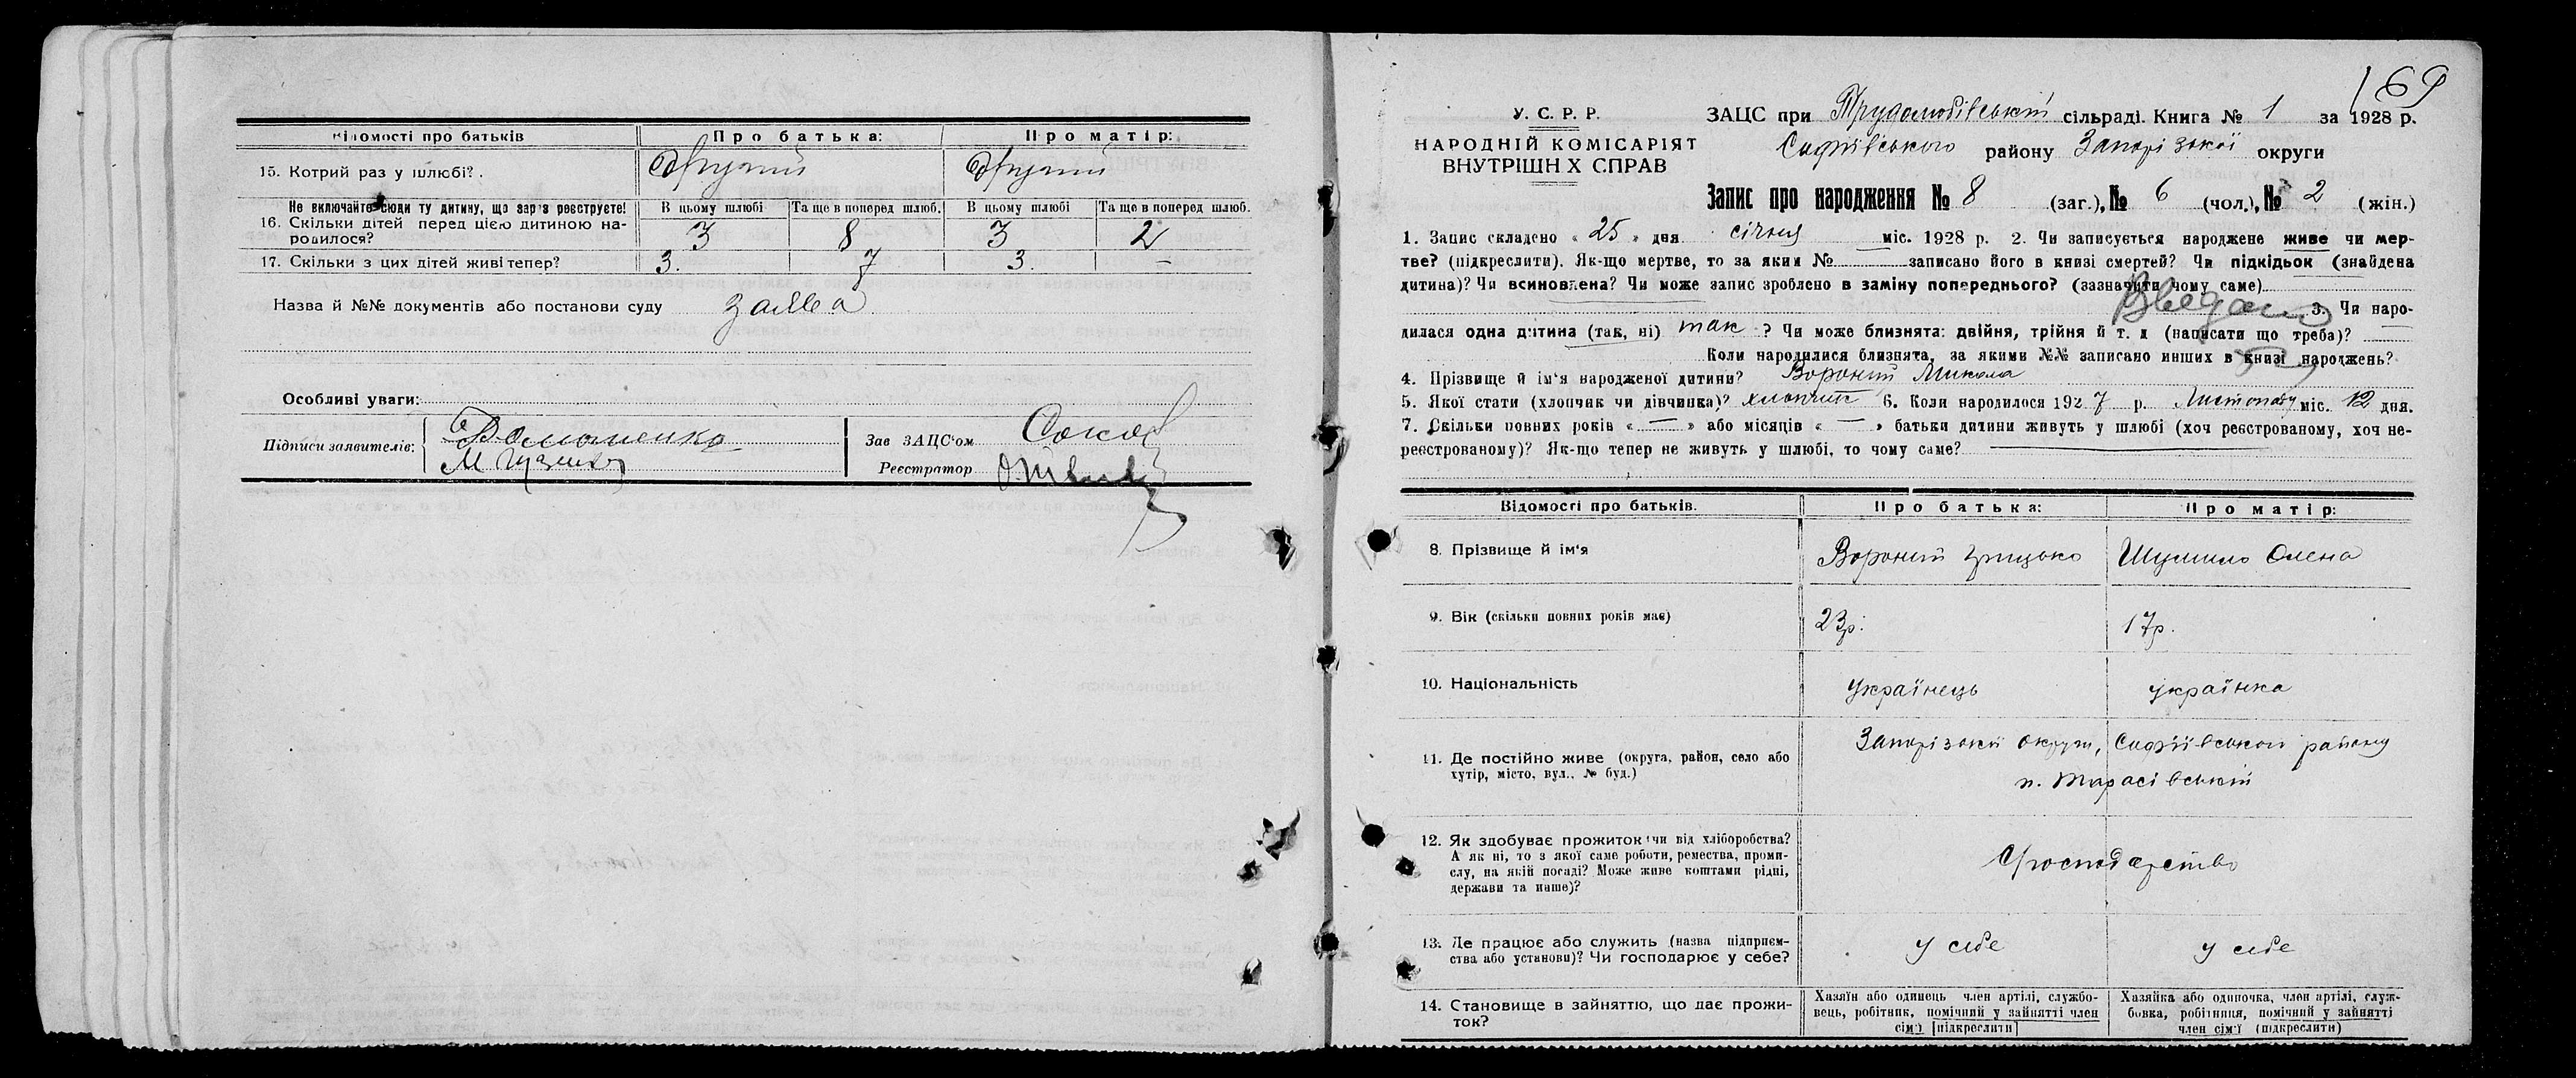 Відомості про батьків
Про батька:
Про матір:
15. Котрий раз у шлюбі?.
Другий
Другий
Не включайте сюди ту дитину, що зараз реєструєте!
В цьому шлюбі
Та ще в поперед шлюб.
В цьому шлюбі
Та ще в поперед шлюб.
16. Скільки дітей перед цією дитиною на-
родилося?
3
8
3
2
17. Скільки з цих дітей живі тепер?
3.
7
3.
—
Назва й №№ документів або постанови суду заява
Особливі уваги:
Підписи заявителів:
Зав ЗАЦС'ом
Реєстратор
169
У. С. Р. Р.
НАРОДНІЙ КОМІСАРІЯТ
ВНУТРІШН Х СПРАВ
ЗАЦС при Трудолюбівській сільраді. Книга № 1 за 1928 р.
Софіївського району Запорізької округи
Запис про народження № 8 (заг.), № 6 (чол.), № 2 (жін.)
1. Запис складено « 25 » дня січня міс. 1928 р. 2. Чи записується народжене живе чи мер-
тве? (підкреслити). Як-що мертве, то за яким № записано його в книзі смертей? Чи підкідьок (знайдена
дитина)? Чи всиновлена? Чи може запис зроблено в заміну попереднього? (зазначити чому саме)
3. Чи наро-
дилася одна дитина (так, ні) так ? Чи може близнята: двійня, трійня й т. д (написати що треба)?
Коли народилися близнята, за якими №№ записано инших в книзі народжень?
4. Прізвище й ім'я народженої дитини? Вороний Микола
5. Якої стати (хлопчик чи дівчинка)? хлопчик 6. Коли народилося 1927 р. Листопаду міс. 12 дня.
7. Скільки повних років « — » або місяців « — » батьки дитини живуть у шлюбі (хоч реєстрованому, хоч не-
реєстрованому)? Як-що тепер не живуть у шлюбі, то чому саме?
Відомості про батьків.
Про батька:
Про матір:
8. Прізвище й ім'я
Вороний Грицько
Шумило Олена
9. Вік (скільки повних років має)
23р.
17р.
10. Національність
Українець
українка
11. Де постійно живе (округа, район, село або
хутір, місто, вул., № буд.)
Запорізької округи, Софіївського району
п. Тарасівський
12. Як здобуває прожиток: чи від хліборобства?
А як ні, то з якої саме роботи, ремества, проми-
слу, на якій посаді? Може живе коштами рідні,
держави та инше)?
Господарство
13. Де працює або служить (назва підприєм-
ства або установи)? Чи господарює у себе?
у себе
у себе
14. Становище в зайняттю, що дає прожи-
ток?
Хазяїн або одинець член артілі, службо-
вець, робітник, помічний у зайнятті член
сім'ї [підкреслити]
Хазяйка або одиночка, член артілі, служ-
бовка, робітниця, помічний у зайнятті
член сім'ї (підкреслити)